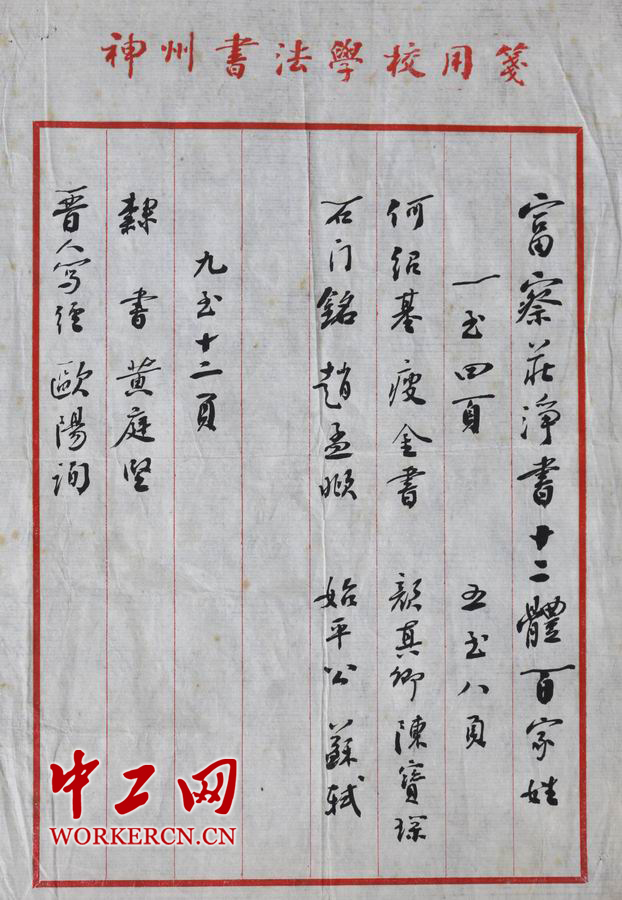 神州書法學校用箋
富察莊淨書十二體百家姓
一至四頁 五至八頁
何紹基 瘦金書 顏真卿 陳寶琛
石门銘 趙孟頫 始平公 蘇軾
九至十二頁
隸書 黄庭堅
晋人寫經 歐陽詢
中工网
WORKERCN.CN